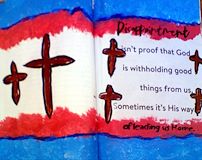 Disappointment
isn't proof that God
is withholding good
things from us.
Sometimes it's His way
of leading us Home.